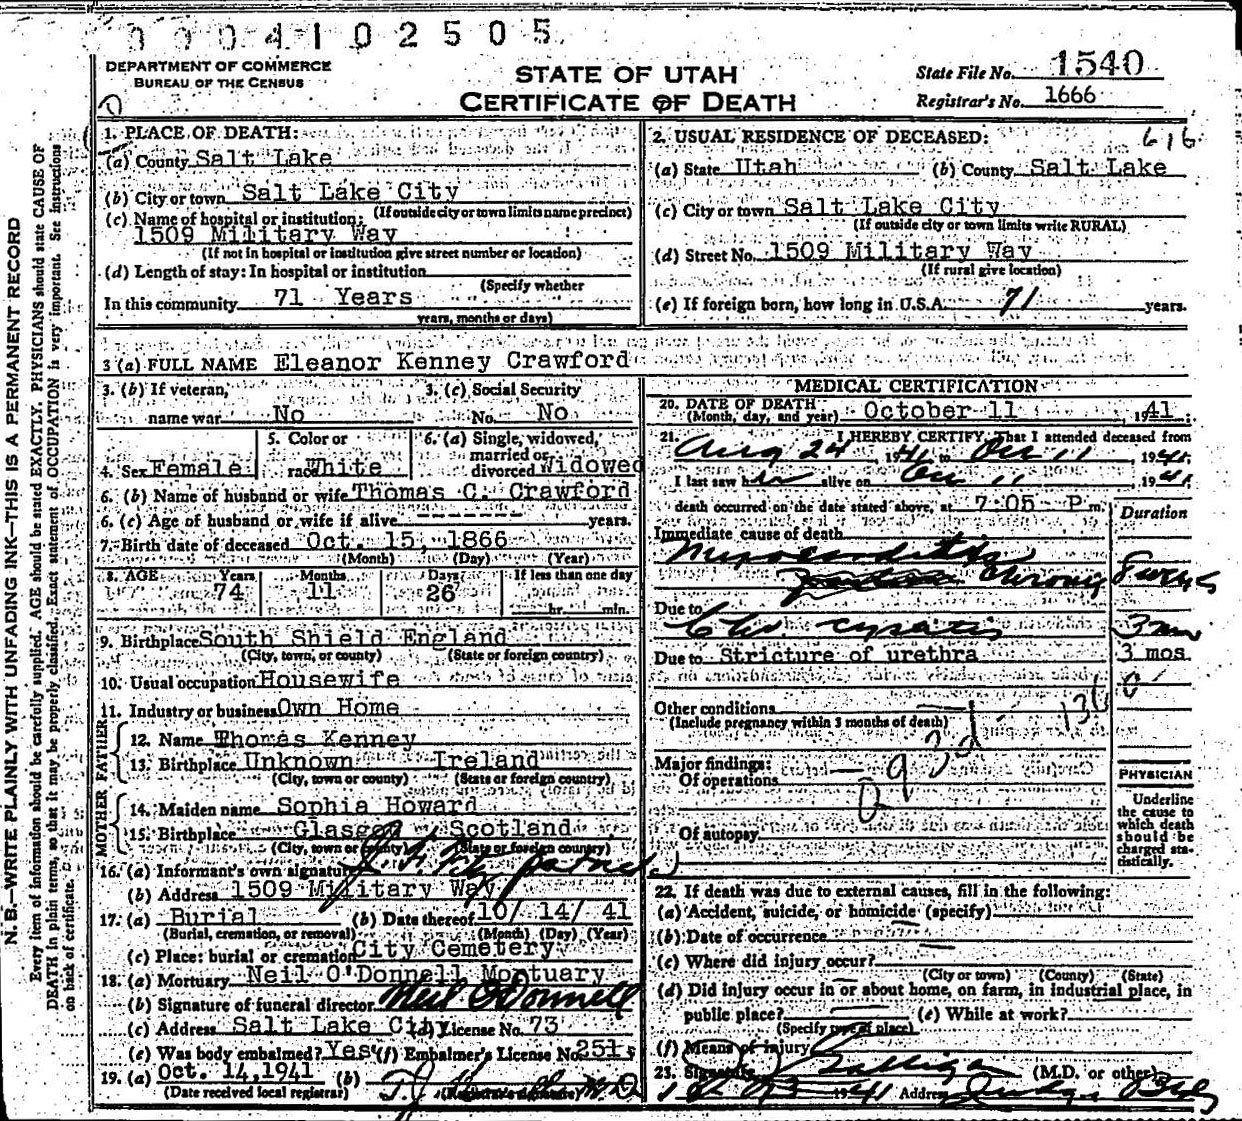 0004102505
DEPARTMENT OF COMMERCE
BUREAU OF THE CENSUS
STATE OF UTAH
CERTIFICATE OF DEATH
State File No. 1540
Registrar's No. 1666
N. B.—WRITE PLAINLY WITH UNFADING INK—THIS IS A PERMANENT RECORD
Every item of information should be carefully supplied. AGE should be stated EXACTLY. PHYSICIANS should state CAUSE OF
DEATH in plain terms, so that it may be properly classified. Exact statement of OCCUPATION is very important. See Instructions
on back of certificate.
1. PLACE OF DEATH:
(a) County Salt Lake
(b) City or town Salt Lake City
(If outside city or town limits name precinct)
(c) Name of hospital or institution:
1509 Military Way
(If not in hospital or institution give street number or location)
(d) Length of stay: In hospital or institution
(Specify whether
In this community 71 Years
years, months or days)
2. USUAL RESIDENCE OF DECEASED: 616
(a) State Utah (b) County Salt Lake
(c) City or town Salt Lake City
(If outside city or town limits write RURAL)
(d) Street No. 1509 Military Way
(If rural give location)
(e) If foreign born, how long in U.S.A. 71 years.
3 (a) FULL NAME Eleanor Kenney Crawford
3. (b) If veteran, 3. (c) Social Security
name war No No. No
4. Sex Female 5. Color or race White 6. (a) Single, widowed, married or divorced Widowed
6. (b) Name of husband or wife Thomas C. Crawford
6. (c) Age of husband or wife if alive -------- years.
7. Birth date of deceased Oct. 15, 1866
(Month) (Day) (Year)
8. AGE Years Months Days If less than one day
74 11 26 hr. min.
9. Birthplace South Shield England
(City, town, or county) (State or foreign country)
10. Usual occupation Housewife
11. Industry or business Own Home
FATHER
12. Name Thomas Kenney
13. Birthplace Unknown Ireland
(City, town or county) (State or foreign country)
MOTHER
14. Maiden name Sophia Howard
15. Birthplace Glasgow Scotland
(City, town or county) (State or foreign country)
16. (a) Informant's own signature J. F. Fitzpatrick
(b) Address 1509 Military Way
17. (a) Burial (b) Date thereof 10/ 14/ 41
(Burial, cremation, or removal) (Month) (Day) (Year)
(c) Place: burial or cremation City Cemetery
18. (a) Mortuary Neil O'Donnell Mortuary
(b) Signature of funeral director Neil O'Donnell
(c) Address Salt Lake City (d) License No. 73
(e) Was body embalmed? Yes (f) Embalmer's License No. 251
19. (a) Oct. 14, 1941 (b) T. J. M. D.
(Date received local registrar) (Registrar's signature)
MEDICAL CERTIFICATION
20. DATE OF DEATH
(Month, day, and year) October 11, 1941
21. I HEREBY CERTIFY, That I attended deceased from
Aug 24, 1941 to Oct 11, 1941.
I last saw her alive on Oct 11 1941.
death occurred on the date stated above, at 7:05 P m.
Duration
Immediate cause of death
Myocarditis
Chronic
Due to
Chr. cystitis 3 mo
Due to Stricture of urethra 3 mos
Other conditions
(Include pregnancy within 3 months of death)
Major findings:
Of operations
93d
Of autopsy
PHYSICIAN
Underline
the cause to
which death
should be
charged sta-
tistically.
22. If death was due to external causes, fill in the following:
(a) Accident, suicide, or homicide (specify)
(b) Date of occurrence
(c) Where did injury occur?
(City or town) (County) (State)
(d) Did injury occur in or about home, on farm, in industrial place, in
public place? (e) While at work?
(Specify type of place)
(f) Means of injury
23. Signature Galligan (M.D. or other)
1941 Address Judge Bldg